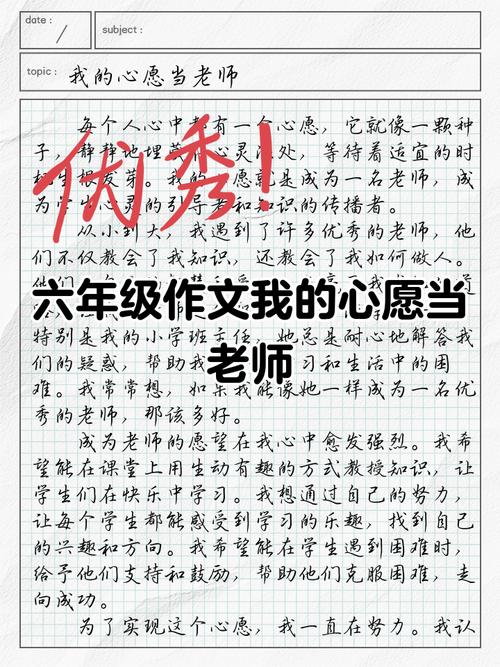 date :
subject :
topic : 我的心愿当老师
每个人心中都有一个心愿，它就像一颗种
子，静静地埋 心灵深处，等待着适宜的时
机生根发芽。我的 愿就是成为一名老师，成
为学生心灵的引导者和知识的传播者。
优秀！
从小到大，我遇到了许多优秀的老师，他
们不仅教会了我知识，还教会了我如何做人。
六年级作文我的心愿当
老师
特别是我的小学班主任，她总是耐心地解答我
们的疑惑，帮助我 习和生活中的困
难。我常常想，如果我能像她一样成为一名优
秀的老师，那该多好。
成为老师的愿望在我心中愈发强烈。我希
望能在课堂上用生动有趣的方式教授知识，让
学生们在快乐中学习。我想通过自己的努力，
让每个学生都能感受到学习的乐趣，找到自己
的兴趣和方向。我希望能在学生遇到困难时，
给予他们支持和鼓励，帮助他们克服困难，走
向成功。
为了实现这个心愿，我一直在努力。我认